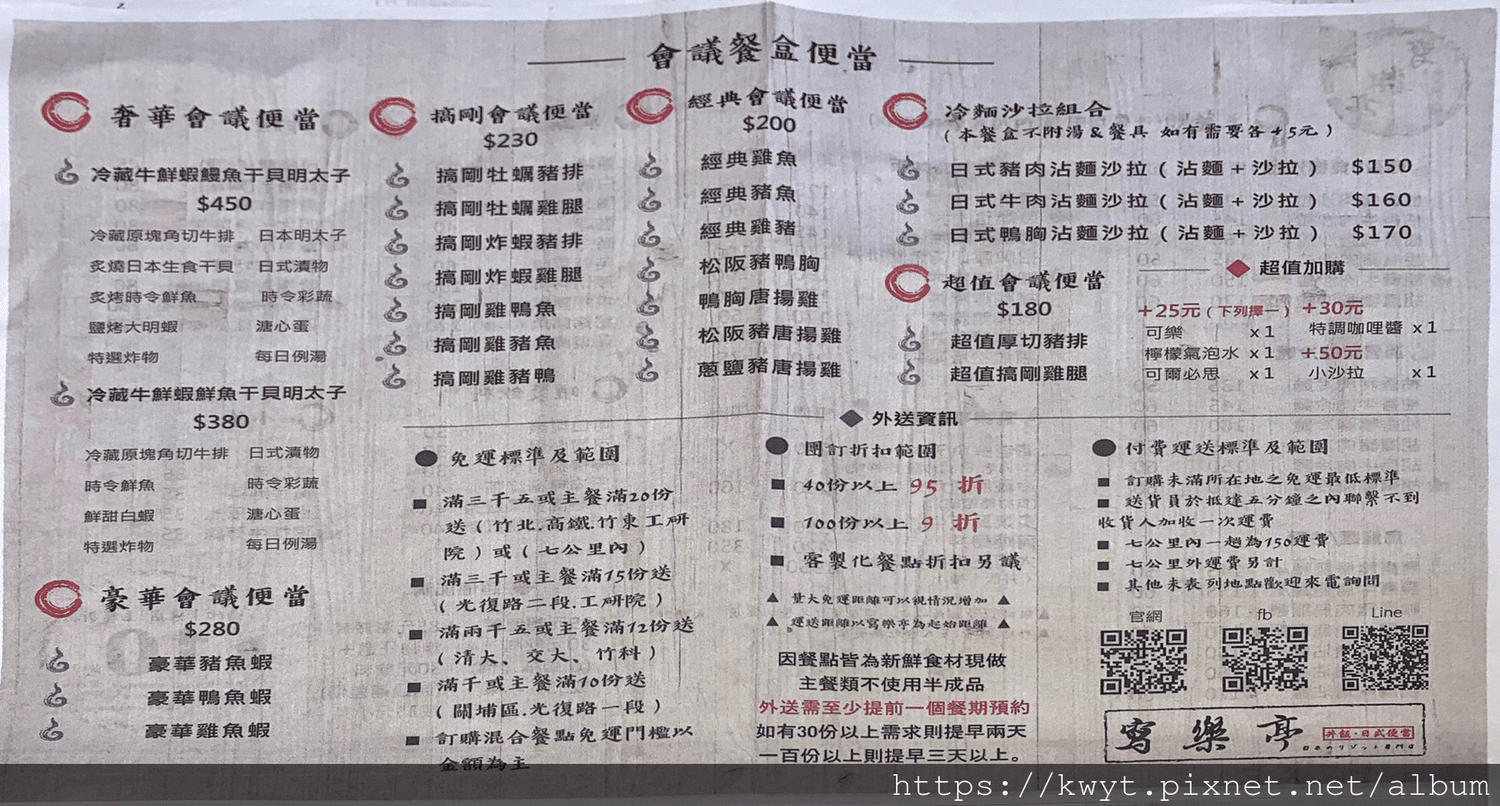 會議餐盒便當
奢華會議便當
冷藏牛鮮蝦鰻魚干貝明太子
$450
冷藏原塊角切牛排 日本明太子
炙燒日本生食干貝 日式漬物
炙烤時令鮮魚 時令彩蔬
鹽烤大明蝦 溏心蛋
特選炸物 每日例湯
冷藏牛鮮蝦鮮魚干貝明太子
$380
冷藏原塊角切牛排 日式漬物
時令鮮魚 時令彩蔬
鮮甜白蝦 溏心蛋
特選炸物 每日例湯
豪華會議便當
$280
豪華豬魚蝦
豪華鴨魚蝦
豪華雞魚蝦
搞剛會議便當
$230
搞剛牡蠣豬排
搞剛牡蠣雞腿
搞剛炸蝦豬排
搞剛炸蝦雞腿
搞剛雞鴨魚
搞剛雞豬魚
搞剛雞豬鴨
經典會議便當
$200
經典雞魚
經典豬魚
經典雞豬
松阪豬鴨胸
鴨胸唐揚雞
松阪豬唐揚雞
蔥鹽豬唐揚雞
冷麵沙拉組合
(本餐盒不附湯&餐具 如有需要各+5元)
日式豬肉沾麵沙拉(沾麵+沙拉) $150
日式牛肉沾麵沙拉(沾麵+沙拉) $160
日式鴨胸沾麵沙拉(沾麵+沙拉) $170
超值會議便當
$180
超值厚切豬排
超值搞剛雞腿
超值加購
+25元(下列擇一) +30元
可樂 x1 特調咖哩醬 x1
檸檬氣泡水 x1 +50元
可爾必思 x1 小沙拉 x1
外送資訊
免運標準及範圍
滿三千五或主餐滿20份
送(竹北.高鐵.竹東工研
院)或(七公里內)
滿三千或主餐滿15份送
(光復路二段.工研院)
滿兩千五或主餐滿12份送
(清大、交大、竹科)
滿千或主餐滿10份送
(關埔區.光復路一段)
訂購混合餐點免運門檻以
金額為主
團訂折扣範圍
40份以上 95 折
100份以上 9 折
客製化餐點折扣另議
▲ 量大免運距離可以視情況增加 ▲
▲ 運送距離以寫樂亭為起始距離 ▲
因餐點皆為新鮮食材現做
主餐類不使用半成品
外送需至少提前一個餐期預約
如有30份以上需求則提早兩天
一百份以上則提早三天以上。
付費運送標準及範圍
訂購未滿所在地之免運最低標準
送貨員於抵達五分鐘之內聯繫不到
收貨人加收一次運費
七公里內一趟為150運費
七公里外運費另計
其他未表列地點歡迎來電詢問
官網 fb Line
寫樂亭
丼飯·日式便當
https://kwyt.pixnet.net/album